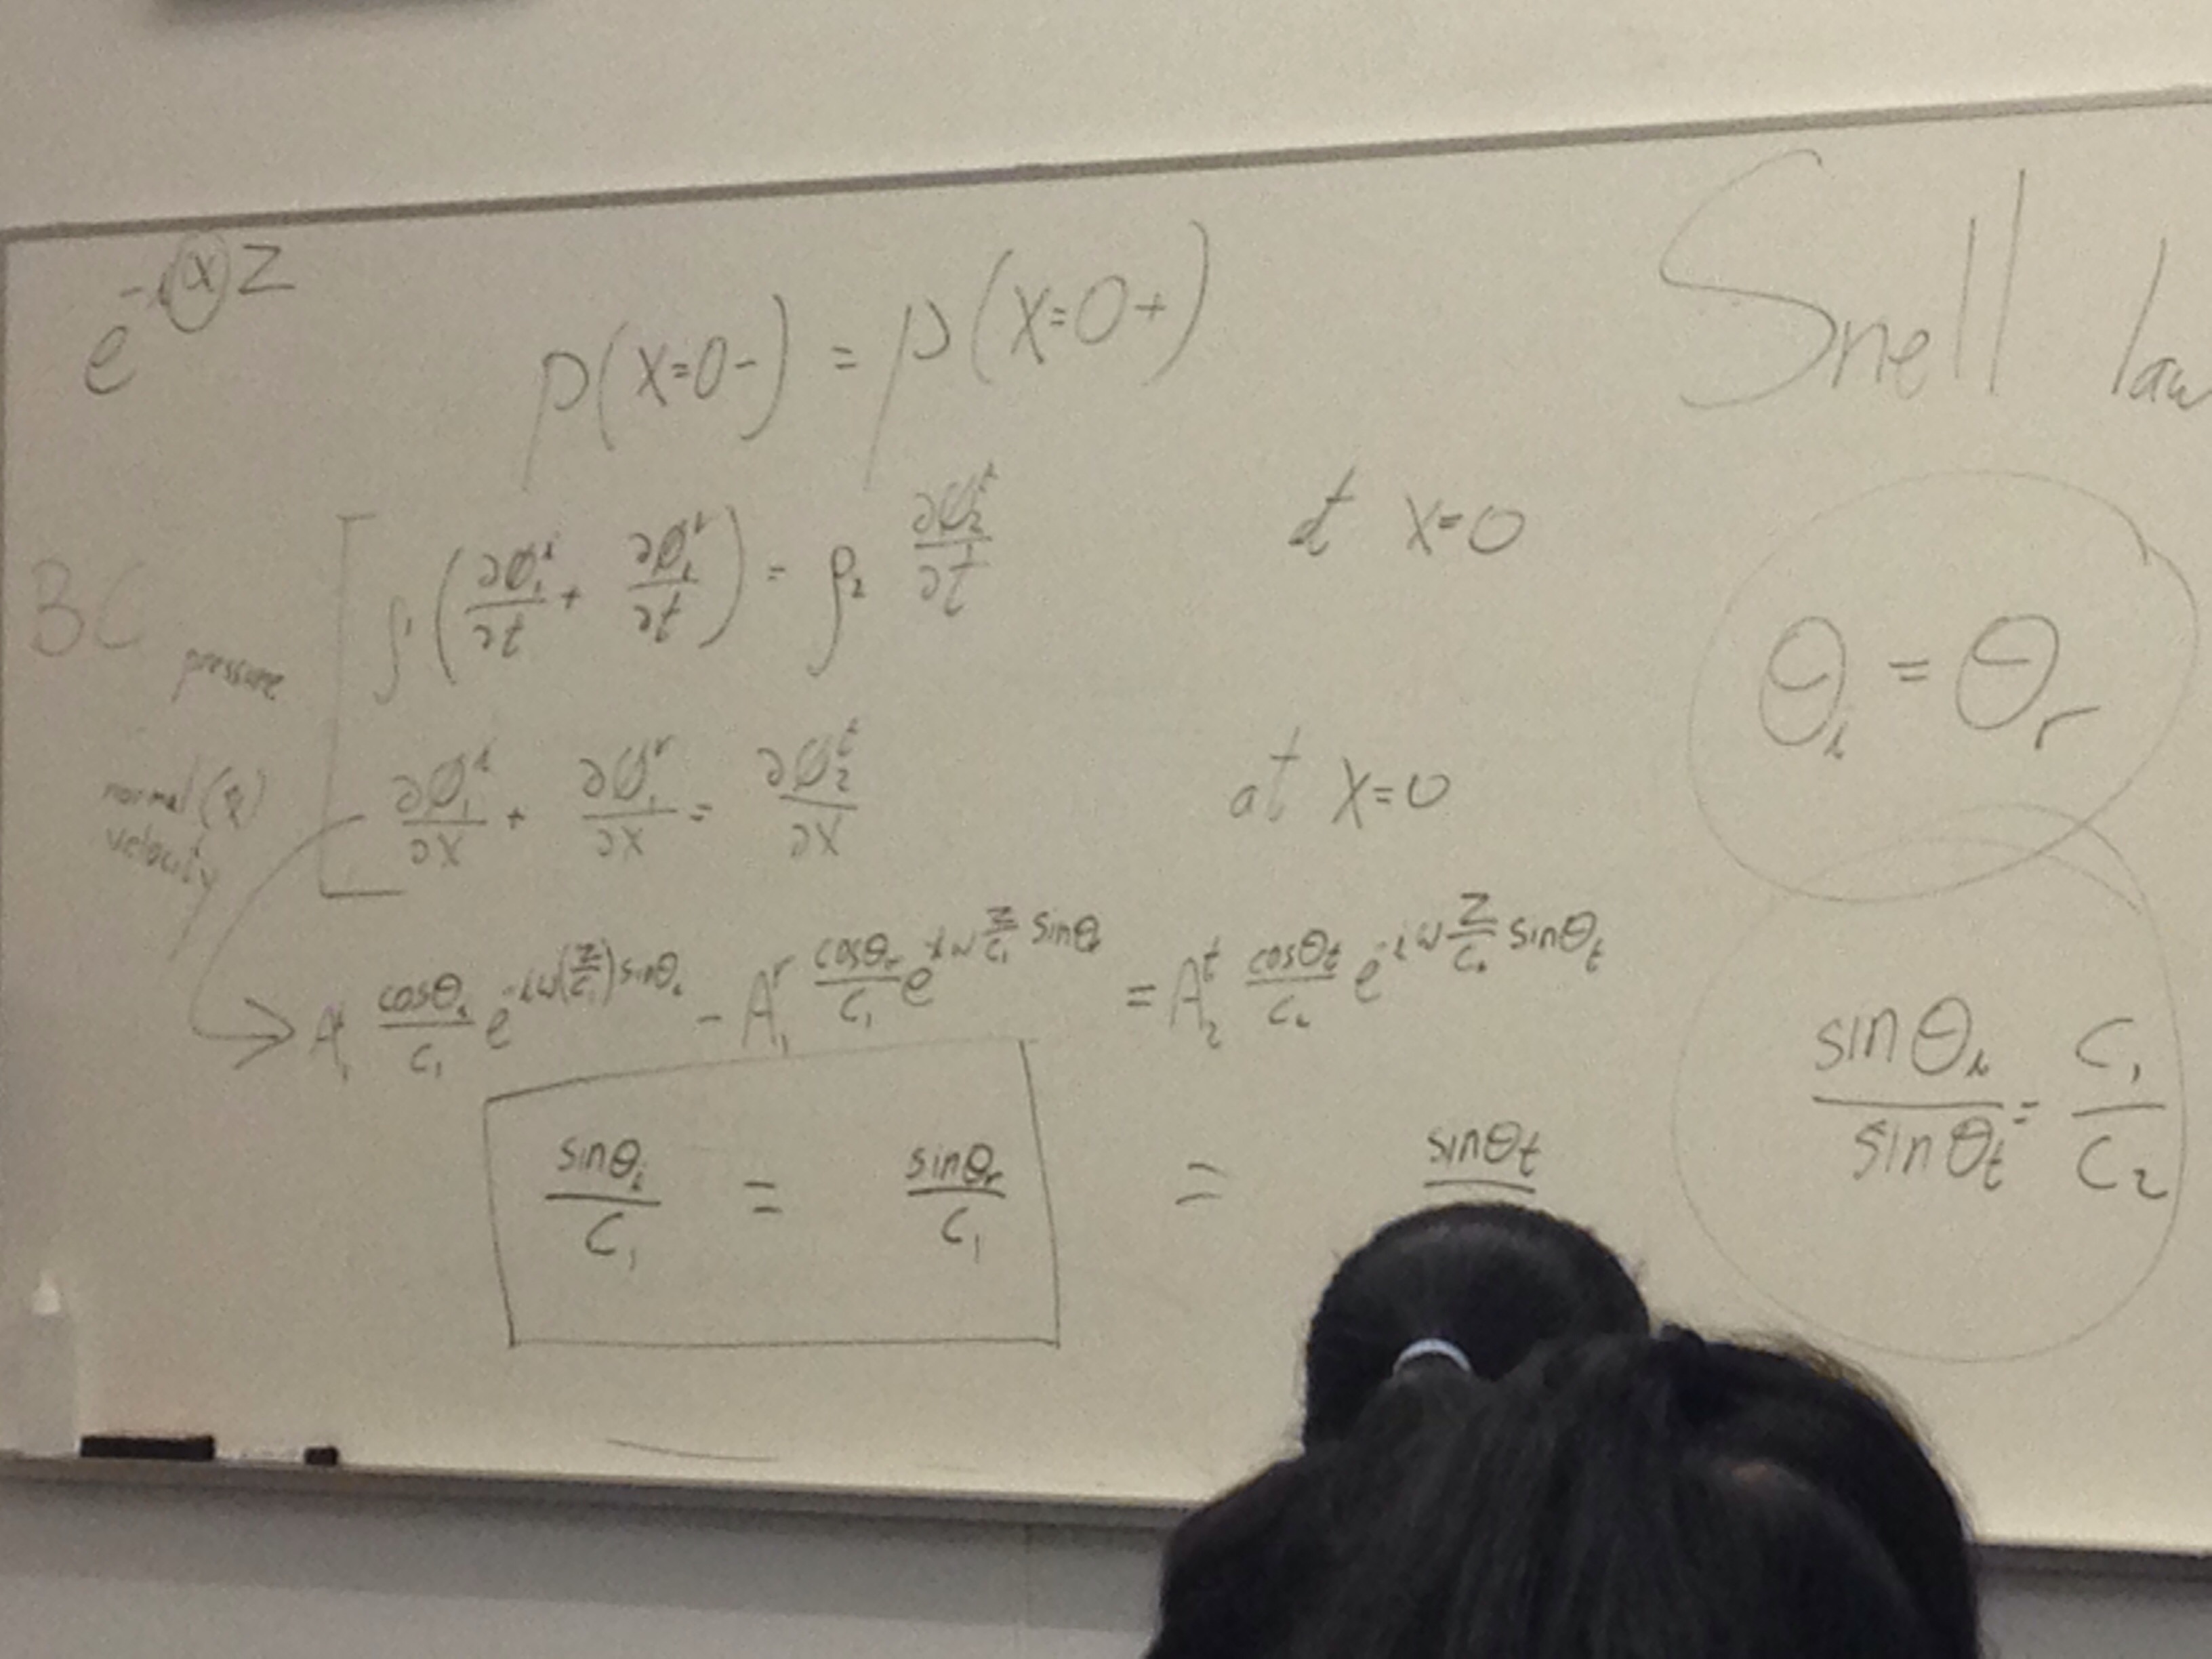 e^{-i(α)z}
p(x=0-) = p(x=0+)
Snell law
BC pressure
ρ₁(∂φ₁ⁱ/∂t + ∂φ₁ʳ/∂t) = ρ₂ ∂φ₂ᵗ/∂t at x=0
θᵢ = θᵣ
normal (x) velocity
∂φ₁ⁱ/∂x + ∂φ₁ʳ/∂x = ∂φ₂ᵗ/∂x at x=0
A₁ⁱ cosθᵢ/c₁ e^{-iω(z/c₁)sinθᵢ} - A₁ʳ cosθᵣ/c₁ e^{-iω z/c₁ sinθᵣ} = A₂ᵗ cosθt/c₂ e^{-iω z/c₂ sinθt}
sinθᵢ/c₁ = sinθᵣ/c₁ = sinθt
sinθᵢ/sinθt = c₁/c₂